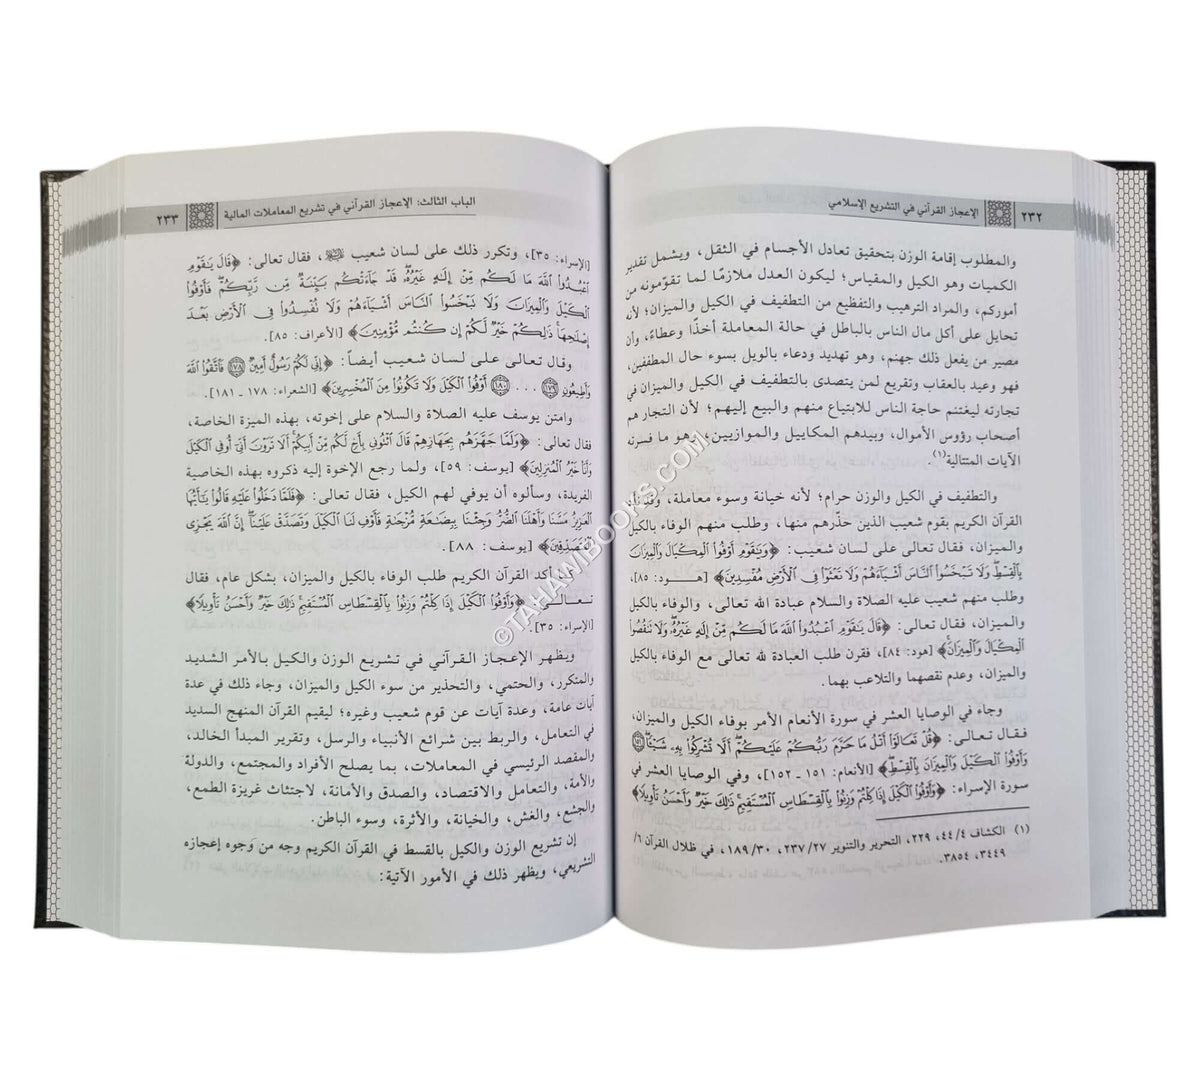 ٢٣٢
الإعجاز القرآني في التشريع الإسلامي
والمطلوب إقامة الوزن بتحقيق تعادل الأجسام في الثقل، ويشمل تقدير
الكميات وهو الكيل والمقياس؛ ليكون العدل ملازمًا لما تقوّمونه من
أموركم، والمراد الترهيب والتفظيع من التطفيف في الكيل والميزان؛ لأنه
تحايل على أكل مال الناس بالباطل في حالة المعاملة أخذًا وعطاءً، وأن
مصير من يفعل ذلك جهنم، وهو تهديد ودعاء بالويل بسوء حال المطففين،
فهو وعيد بالعقاب وتقريع لمن يتصدى بالتطفيف في الكيل والميزان في
تجارته ليغتنم حاجة الناس للابتياع منهم والبيع إليهم؛ لأن التجار هم
أصحاب رؤوس الأموال، وبيدهم المكاييل والموازيين، وهو ما فسرته
الآيات المتتالية(١).
والتطفيف في الكيل والوزن حرام؛ لأنه خيانة وسوء معاملة،
القرآن الكريم بقوم شعيب الذين حذّرهم منها، وطلب منهم الوفاء بالكيل
والميزان، فقال تعالى على لسان شعيب: ﴿وَيَٰقَوْمِ أَوْفُوا۟ ٱلْمِكْيَالَ وَٱلْمِيزَانَ
بِٱلْقِسْطِ وَلَا تَبْخَسُوا۟ ٱلنَّاسَ أَشْيَآءَهُمْ وَلَا تَعْثَوْا۟ فِى ٱلْأَرْضِ مُفْسِدِينَ﴾ [هـود: ٨٥]،
وطلب منهم شعيب عليه الصلاة والسلام عبادة الله تعالى، والوفاء بالكيل
والميزان، فقال تعالى: ﴿قَالَ يَٰقَوْمِ ٱعْبُدُوا۟ ٱللَّهَ مَا لَكُم مِّنْ إِلَٰهٍ غَيْرُهُۥ وَلَا تَنقُصُوا۟
ٱلْمِكْيَالَ وَٱلْمِيزَانَ﴾ [هود: ٨٤]، فقرن طلب العبادة لله تعالى مع الوفاء بالكيل
والميزان، وعدم نقصهما والتلاعب بهما.
وجاء في الوصايا العشر في سورة الأنعام الأمر بوفاء الكيل والميزان،
فـقـال تـعـالـى: ﴿قُلْ تَعَالَوْا۟ أَتْلُ مَا حَرَّمَ رَبُّكُمْ عَلَيْكُمْ أَلَّا تُشْرِكُوا۟ بِهِۦ شَيْـًٔا ١٥١
وَأَوْفُوا۟ ٱلْكَيْلَ وَٱلْمِيزَانَ بِٱلْقِسْطِ﴾ [الأنعام: ١٥١ ـ ١٥٢]، وفي الوصايا العشر في
سورة الإسراء: ﴿وَأَوْفُوا۟ ٱلْكَيْلَ إِذَا كِلْتُمْ وَزِنُوا۟ بِٱلْقِسْطَاسِ ٱلْمُسْتَقِيمِ ذَٰلِكَ خَيْرٌ وَأَحْسَنُ تَأْوِيلًا﴾
(١) الكشاف ٤/ ٤٤، ٢٢٩، التحرير والتنوير ٢٧/ ٢٣٧، ٣٠/ ١٨٩، في ظلال القرآن ٦/
٣٤٤٩، ٣٨٥٤.
الباب الثالث: الإعجاز القرآني في تشريع المعاملات المالية
٢٣٣
[الإسراء: ٣٥]، وتكرر ذلك على لسان شعيب، فقال تعالى: ﴿قَالَ يَٰقَوْمِ
ٱعْبُدُوا۟ ٱللَّهَ مَا لَكُم مِّنْ إِلَٰهٍ غَيْرُهُۥ قَدْ جَآءَتْكُم بَيِّنَةٌ مِّن رَّبِّكُمْ فَأَوْفُوا۟
ٱلْكَيْلَ وَٱلْمِيزَانَ وَلَا تَبْخَسُوا۟ ٱلنَّاسَ أَشْيَآءَهُمْ وَلَا تُفْسِدُوا۟ فِى ٱلْأَرْضِ بَعْدَ
إِصْلَٰحِهَا ذَٰلِكُمْ خَيْرٌ لَّكُمْ إِن كُنتُم مُّؤْمِنِينَ﴾ [الأعراف: ٨٥].
وقال تعالى على لسان شعيب أيضاً: ﴿إِنِّى لَكُمْ رَسُولٌ أَمِينٌ ١٧٨ فَٱتَّقُوا۟ ٱللَّهَ
وَأَطِيعُونِ ١٧٩ . . . ١٨٠ أَوْفُوا۟ ٱلْكَيْلَ وَلَا تَكُونُوا۟ مِنَ ٱلْمُخْسِرِينَ﴾ [الشعراء: ١٧٨ ـ ١٨١].
وامتن يوسف عليه الصلاة والسلام على إخوته، بهذه الميزة الخاصة،
فقال تعالى: ﴿وَلَمَّا جَهَّزَهُم بِجَهَازِهِمْ قَالَ ٱئْتُونِى بِأَخٍ لَّكُم مِّنْ أَبِيكُمْ أَلَا تَرَوْنَ أَنِّىٓ أُوفِى ٱلْكَيْلَ
وَأَنَا۠ خَيْرُ ٱلْمُنزِلِينَ﴾ [يوسف: ٥٩]، ولما رجع الإخوة إليه ذكروه بهذه الخاصية
الفريدة، وسألوه أن يوفي لهم الكيل، فقال تعالى: ﴿فَلَمَّا دَخَلُوا۟ عَلَيْهِ قَالُوا۟ يَٰٓأَيُّهَا
ٱلْعَزِيزُ مَسَّنَا وَأَهْلَنَا ٱلضُّرُّ وَجِئْنَا بِبِضَٰعَةٍ مُّزْجَىٰةٍ فَأَوْفِ لَنَا ٱلْكَيْلَ وَتَصَدَّقْ عَلَيْنَآ إِنَّ ٱللَّهَ يَجْزِى
ٱلْمُتَصَدِّقِينَ﴾ [يوسف: ٨٨].
أكد القرآن الكريم طلب الوفاء بالكيل والميزان، بشكل عام، فقال
تـعـالـى: ﴿وَأَوْفُوا۟ ٱلْكَيْلَ إِذَا كِلْتُمْ وَزِنُوا۟ بِٱلْقِسْطَاسِ ٱلْمُسْتَقِيمِ ذَٰلِكَ خَيْرٌ وَأَحْسَنُ تَأْوِيلًا﴾
[الإسراء: ٣٥].
ويظهر الإعجاز القرآني في تشريع الوزن والكيل بالأمر الشديد
والمتكرر، والحتمي، والتحذير من سوء الكيل والميزان، وجاء ذلك في عدة
آيات عامة، وعدة آيات عن قوم شعيب وغيره؛ ليقيم القرآن المنهج السديد
في التعامل، والربط بين شرائع الأنبياء والرسل، وتقرير المبدأ الخالد،
والمقصد الرئيسي في المعاملات، بما يصلح الأفراد والمجتمع، والدولة
والأمة، والتعامل والاقتصاد، والصدق والأمانة، لاجتثاث غريزة الطمع،
والجشع، والغش، والخيانة، والأثرة، وسوء الباطن.
إن تشريع الوزن والكيل بالقسط في القرآن الكريم وجه من وجوه إعجازه
التشريعي، ويظهر ذلك في الأمور الآتية:
©TAHAMIBOOKS.COM